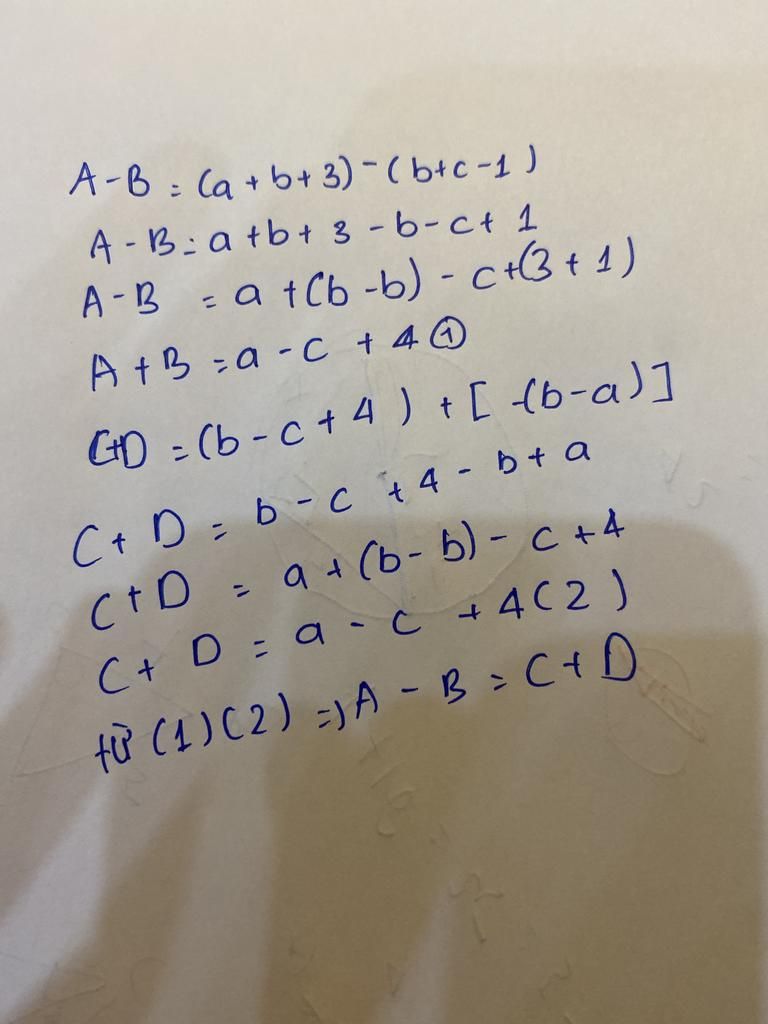 A-B = (a+b+3)-(b+c-1)
A-B = a+b+3-b-c+1
A-B = a+(b-b)-c+(3+1)
A+B = a-c+4 ①
C+D = (b-c+4)+[-(b-a)]
C+D = b-c+4-b+a
C+D = a+(b-b)-c+4
C+D = a-c+4(2)
từ (1)(2) => A-B = C+D